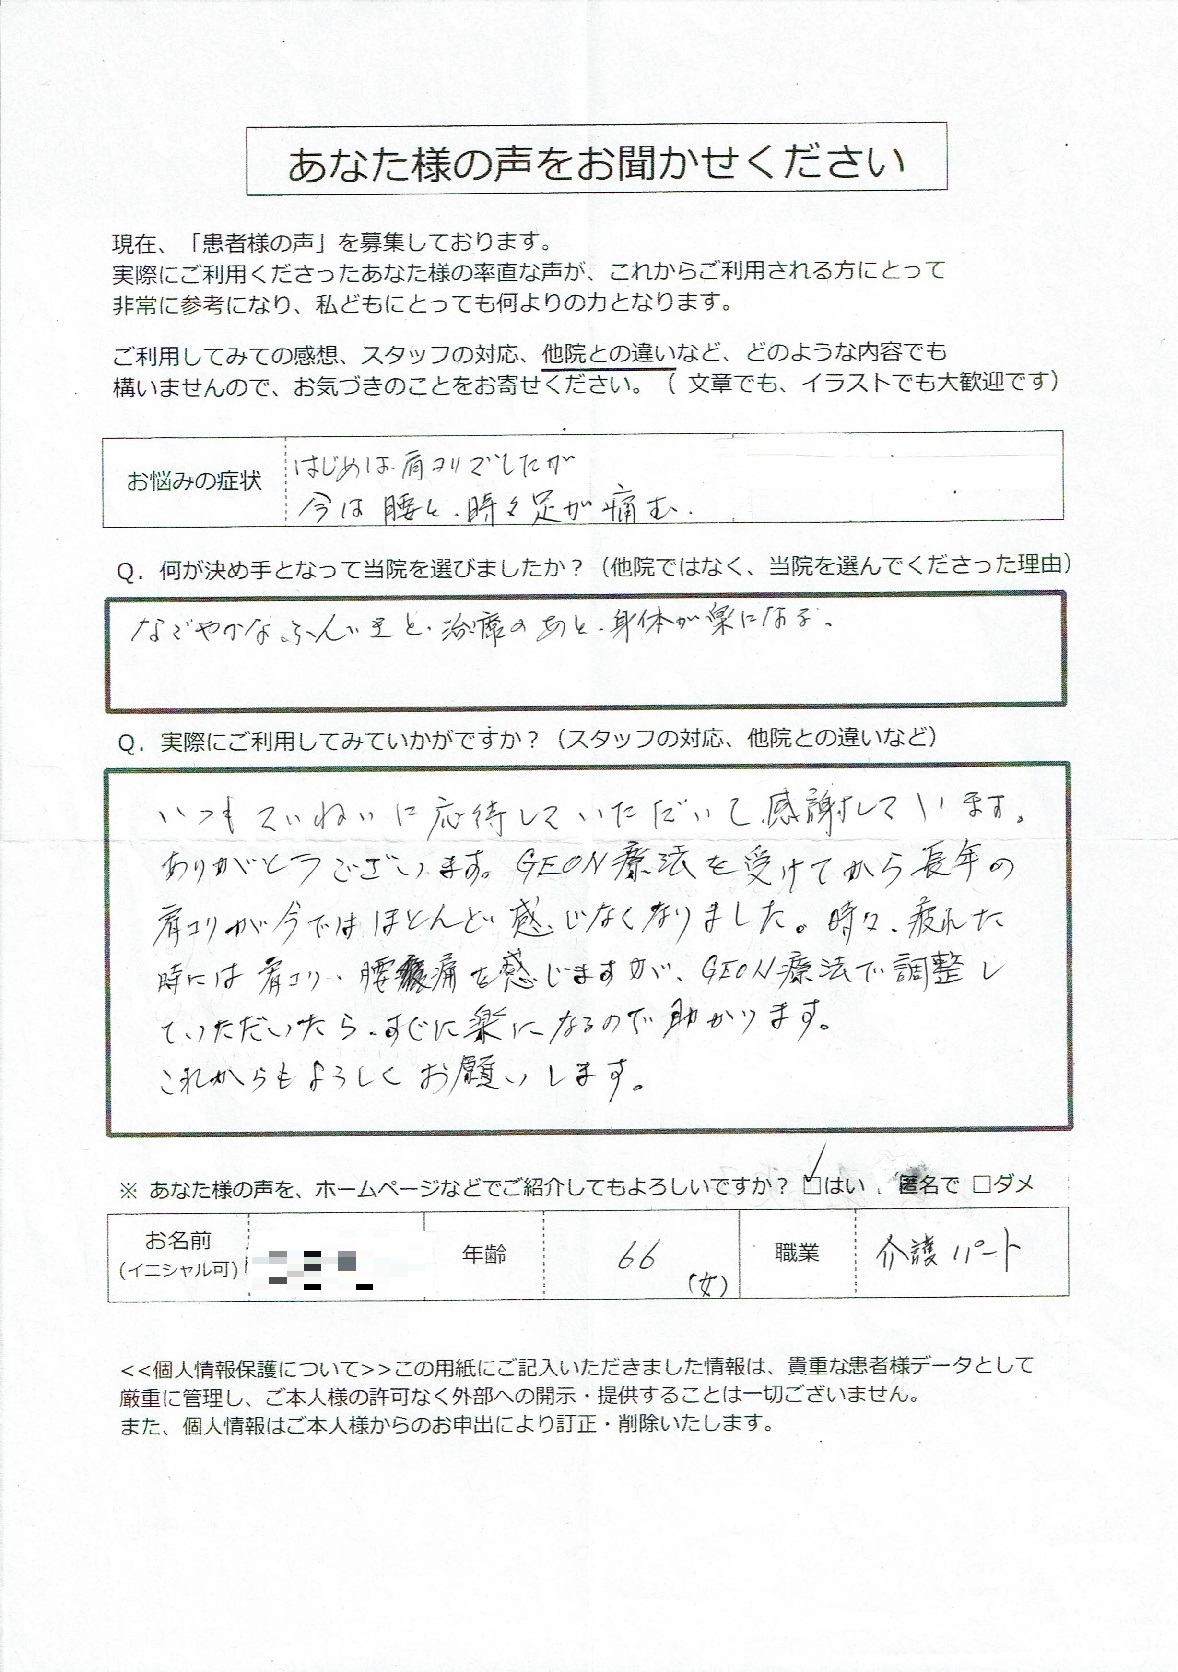 あなた様の声をお聞かせください
現在、「患者様の声」を募集しております。
実際にご利用くださったあなた様の率直な声が、これからご利用される方にとって
非常に参考になり、私どもにとっても何よりの力となります。
ご利用してみての感想、スタッフの対応、他院との違いなど、どのような内容でも
構いませんので、お気づきのことをお寄せください。（ 文章でも、イラストでも大歓迎です）
お悩みの症状
はじめは肩コリでしたが
今は腰と、時々足が痛む.
Q．何が決め手となって当院を選びましたか？（他院ではなく、当院を選んでくださった理由）
なごやかなふんい気と、治療のあと、身体が楽になる。
Q．実際にご利用してみていかがですか？（スタッフの対応、他院との違いなど）
いつもていねいに応待していただいて感謝しています。
ありがとうございます。GEON療法を受けてから長年の
肩コリが今ではほとんど感じなくなりました。時々、疲れた
時には肩コリ、腰痛を感じますが、GEON療法で調整し
ていただいたら、すぐに楽になるので助かります。
これからもよろしくお願いします。
※ あなた様の声を、ホームページなどでご紹介してもよろしいですか？ □はい 、匿名で □ダメ
お名前
（イニシャル可）
年齢
66
（女）
職業
介護パート
<<個人情報保護について>>この用紙にご記入いただきました情報は、貴重な患者様データとして
厳重に管理し、ご本人様の許可なく外部への開示・提供することは一切ございません。
また、個人情報はご本人様からのお申出により訂正・削除いたします。